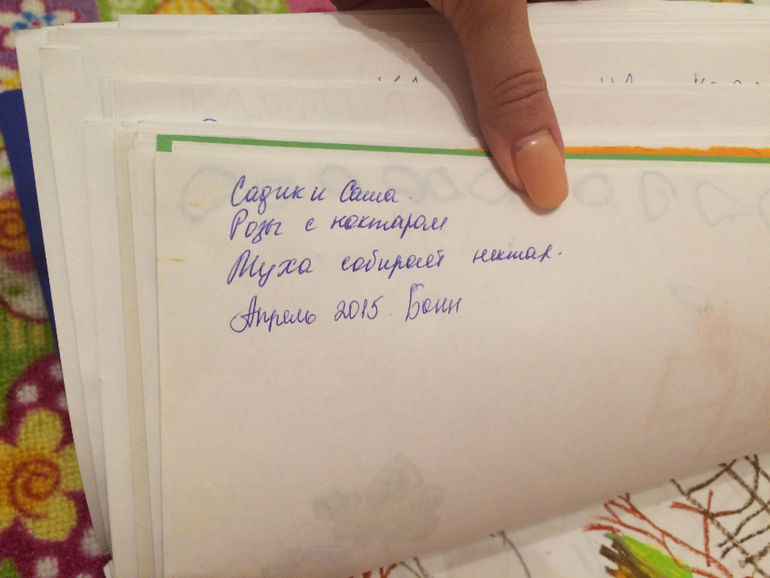 Садик и Саша.
Розы с нектаром
Муха собирает нектар.
Апрель 2015. Бонн